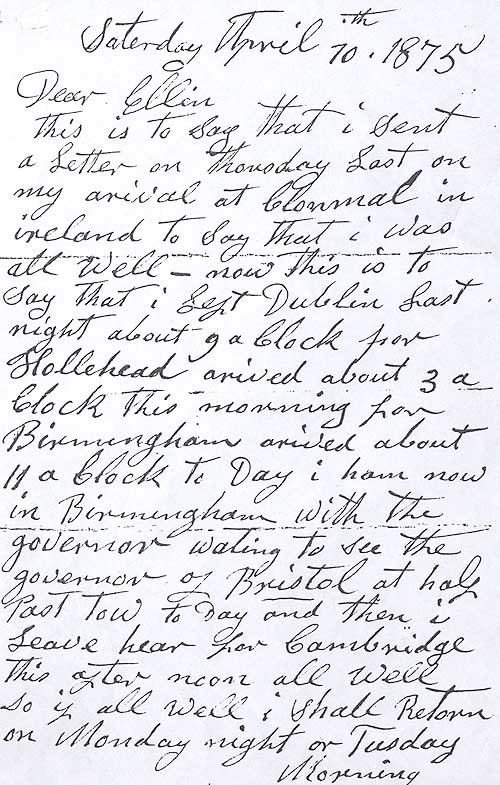 Saterday April 10th. 1875
Dear Ellin
this is to Say that i Sent
a Letter on thorsday Last on
my arival at Clonmal in
ireland to Say that i was
all Well – now this is to
Say that i Left Dublin Last
night about 9 a Clock for
Hollehead arived about 3 a
Clock this morning for
Birmingham arived about
11 a Clock to Day i ham now
in Birmingham with the
governor wating to see the
governor of Bristol at half
Past tow to Day and then i
Leave hear for Cambridge
this after noon all Well
So if all Well i Shall Retorn
on Monday night or Tusday
Morning